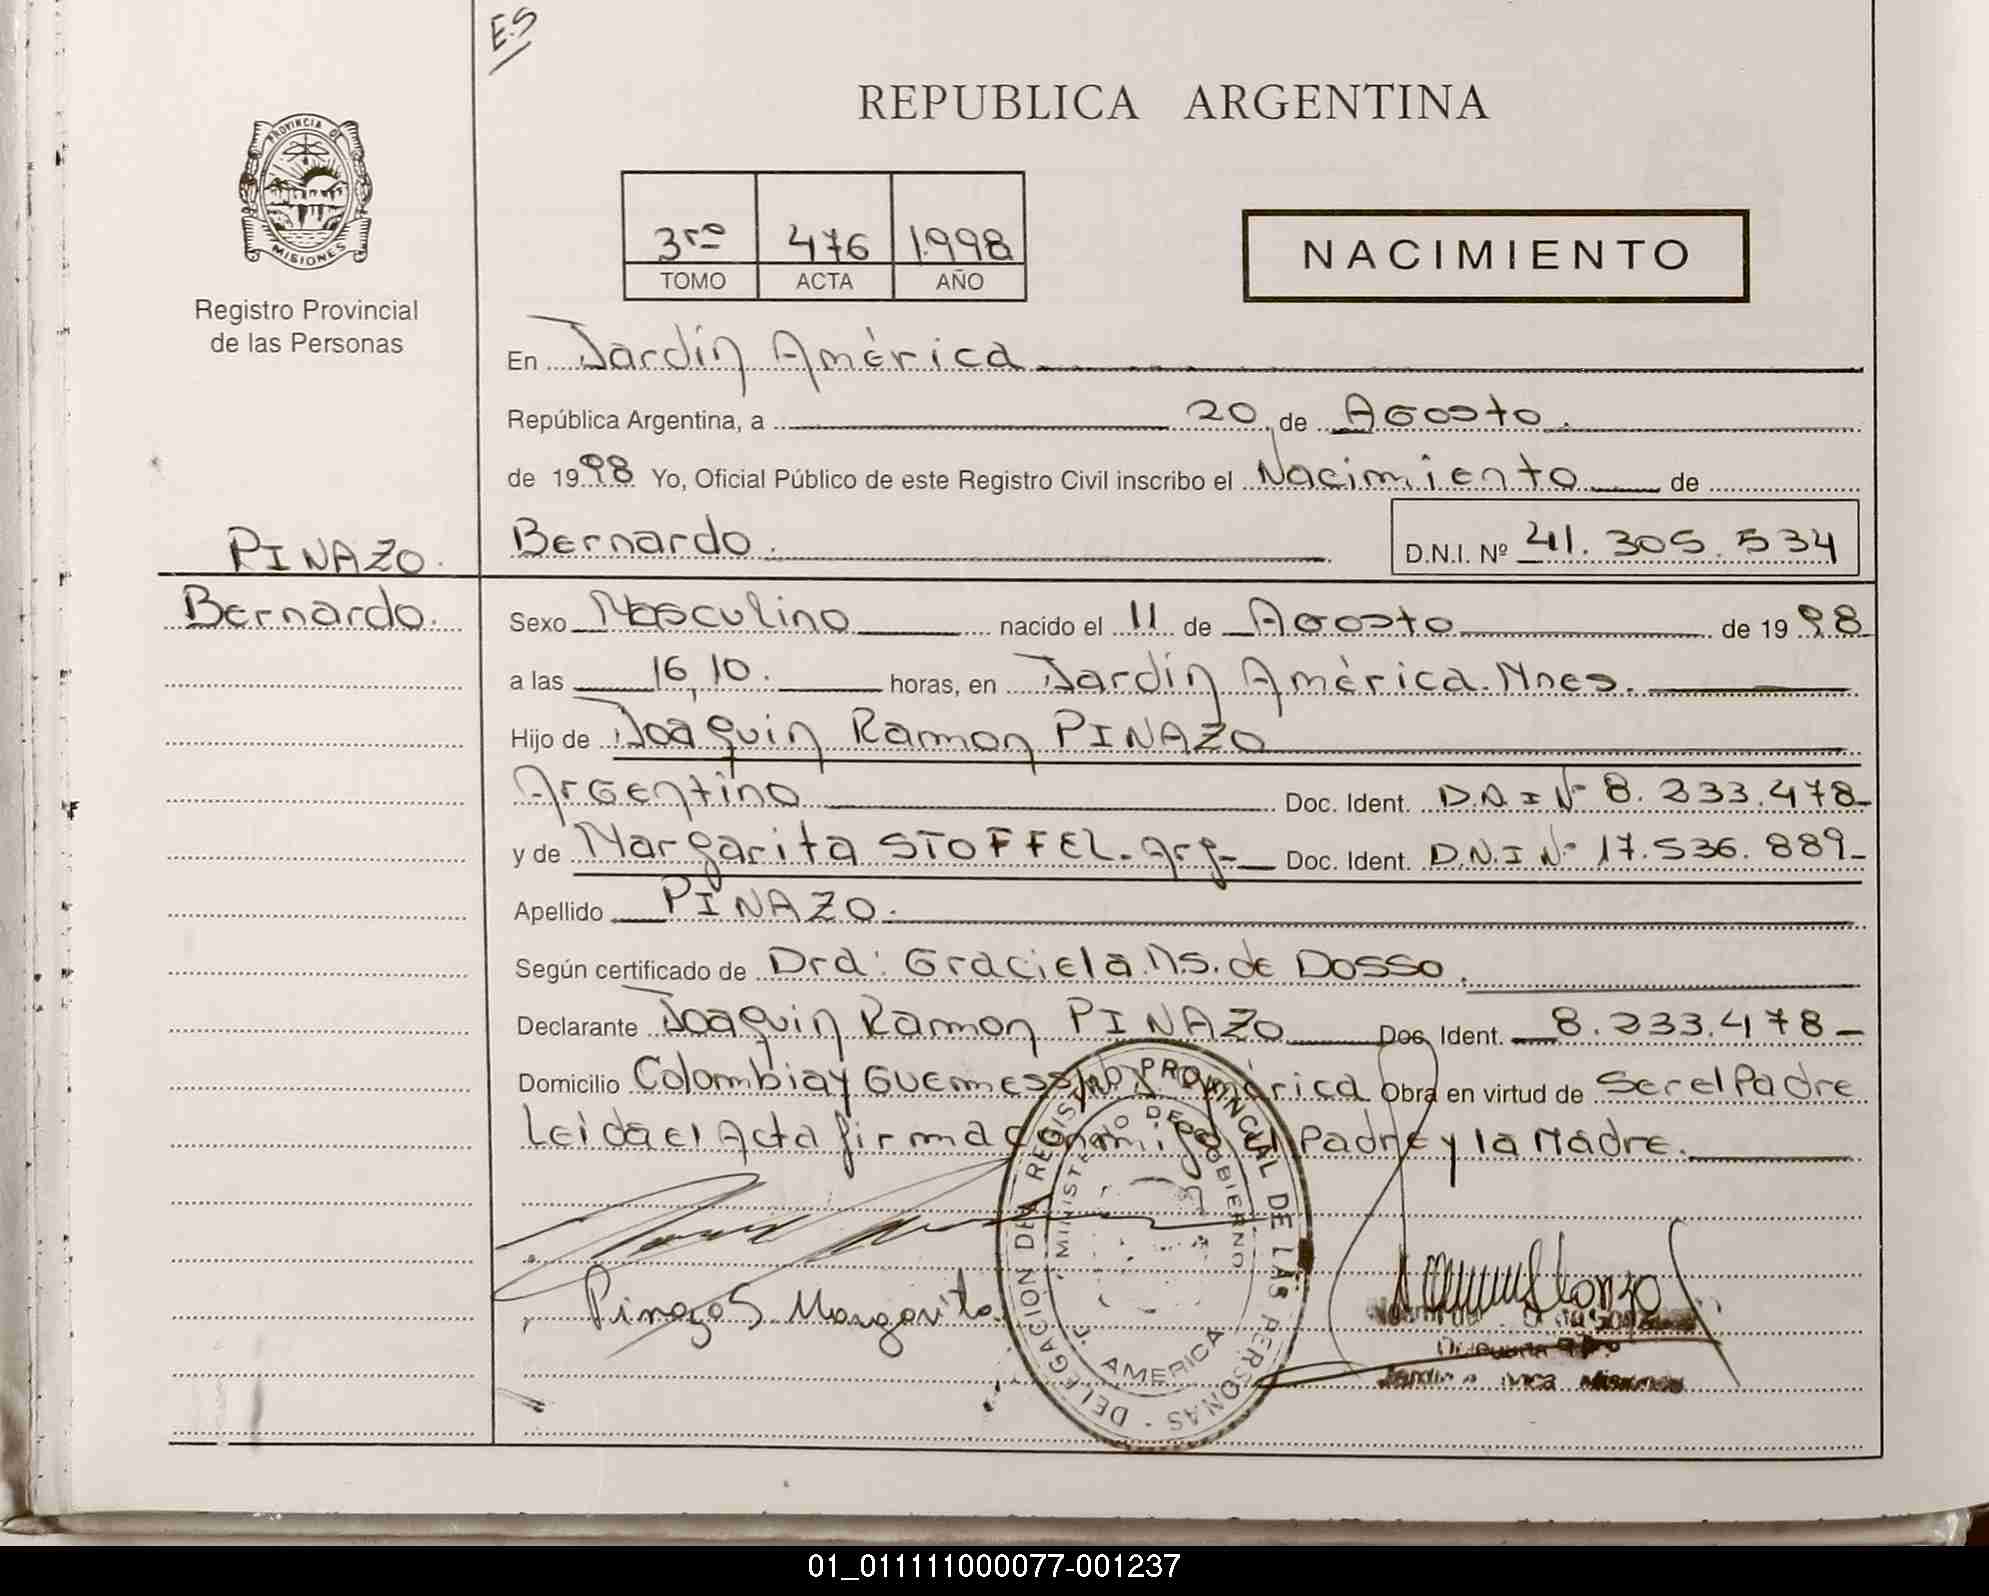 E.S
REPUBLICA ARGENTINA
PROVINCIA DE
MISIONES
Registro Provincial
de las Personas
3ro 476 1.998
TOMO ACTA AÑO
NACIMIENTO
En Jardín América
República Argentina, a 20 de Agosto.
de 1998 Yo, Oficial Público de este Registro Civil inscribo el Nacimiento de
PINAZO.
Bernardo.
Bernardo. D.N.I. Nº 41.305.534
Sexo Masculino nacido el 11 de Agosto de 1998
a las 16,10. horas, en Jardín América. Mnes.
Hijo de Joaquin Ramon PINAZO
Argentino Doc. Ident. D.N.I Nº 8.233.478
y de Margarita STOFFEL. Arg. Doc. Ident. D.N.I Nº 17.536.889
Apellido PINAZO.
Según certificado de Dra: Graciela N.S. de Dosso.
Declarante Joaquin Ramon PINAZO Doc. Ident. 8.233.478
Domicilio Colombia y Guemes América Obra en virtud de Ser el Padre
Leida el Acta firma conmigo el Padre y la Madre.
DELEGACION DEL REGISTRO PROVINCIAL DE LAS PERSONAS
MINISTERIO DE GOBIERNO
J. AMERICA
Pinazo S. Margarita
01_011111000077-001237